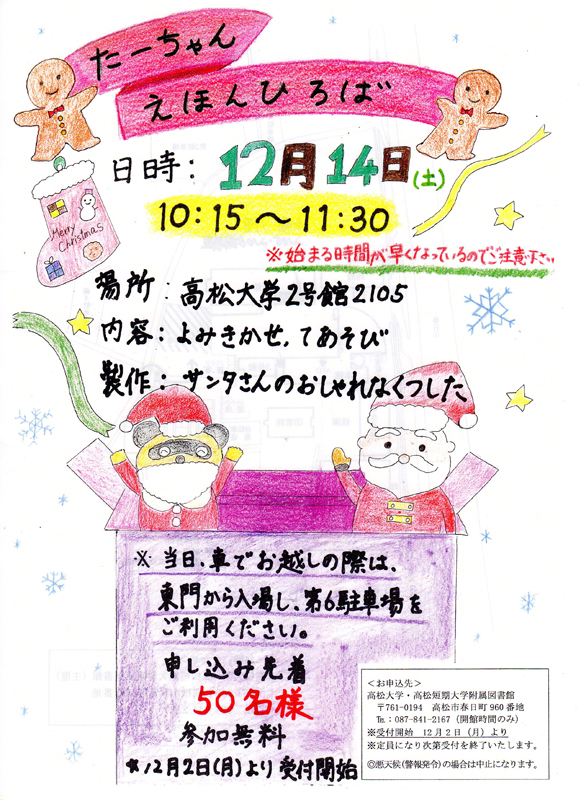 たーちゃん
えほんひろば
日時：12月14日(土)
10：15～11：30
※始まる時間が早くなっているのでご注意下さい
Merry
Christmas
場所：高松大学2号館2105
内容：よみきかせ，てあそび
製作：サンタさんのおしゃれなくつした
※当日、車でお越しの際は、
東門から入場し、第6駐車場を
ご利用ください。
申し込み先着
50名様
参加無料
※12月2日(月)より受付開始
＜お申込先＞
高松大学・高松短期大学附属図書館
〒761-0194　高松市春日町960番地
℡：087-841-2167（開館時間のみ）
※受付開始　12月2日（月）より
※定員になり次第受付を終了いたします。
◎悪天候(警報発令)の場合は中止になります。